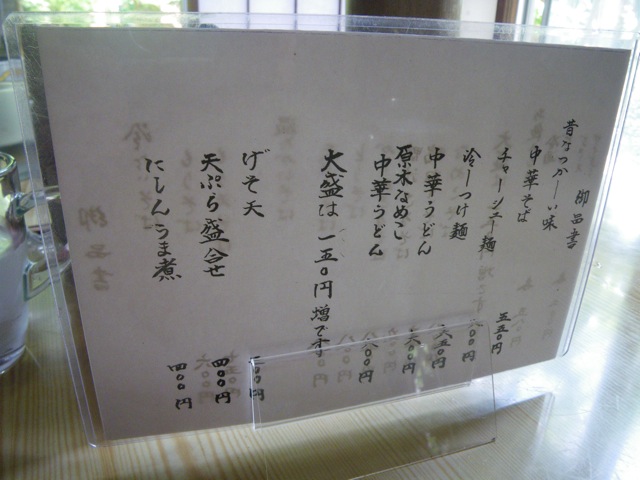 御品書
昔なつかしい味
中華そば 五五〇円
チャーシュー麺
冷しつけ麺 六五〇円
中華うどん 六〇〇円
原木なめこ
中華うどん 八〇〇円
大盛は一五〇円増です
げそ天
天ぷら盛合せ 四〇〇円
にしんうま煮 四〇〇円